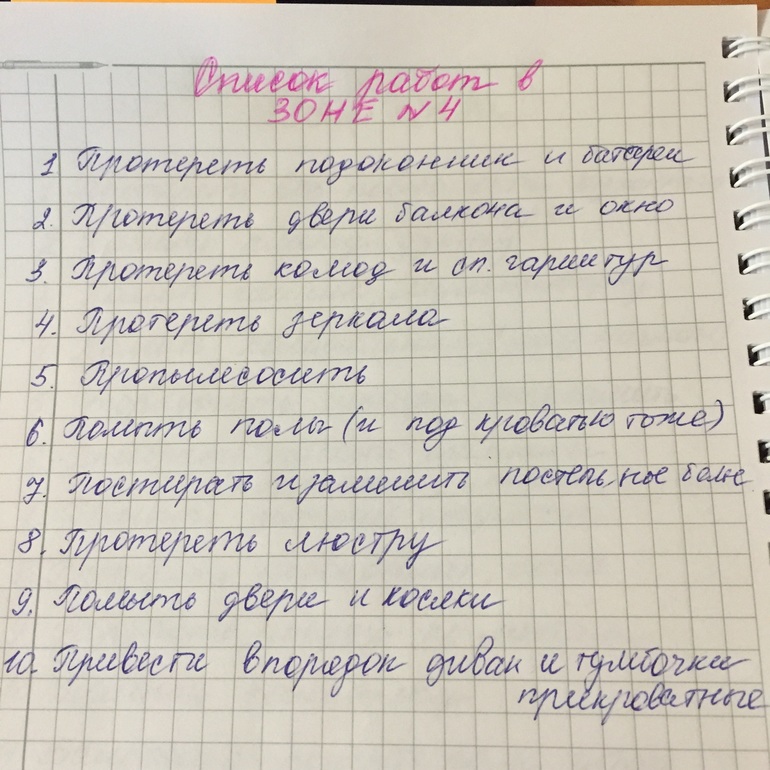 Список работ в
ЗОНЕ №4
1 Протереть подоконник и батареи
2. Протереть двери балкона и окно
3. Протереть комод и сп. гарнитур
4. Протереть зеркала
5. Пропылесосить
6. Помыть полы (и под кроватью тоже)
7. Постирать и заменить постельное белье
8. Протереть люстру
9. Помыть двери и косяки
10. Привести в порядок диван и тумбочки
прикроватные